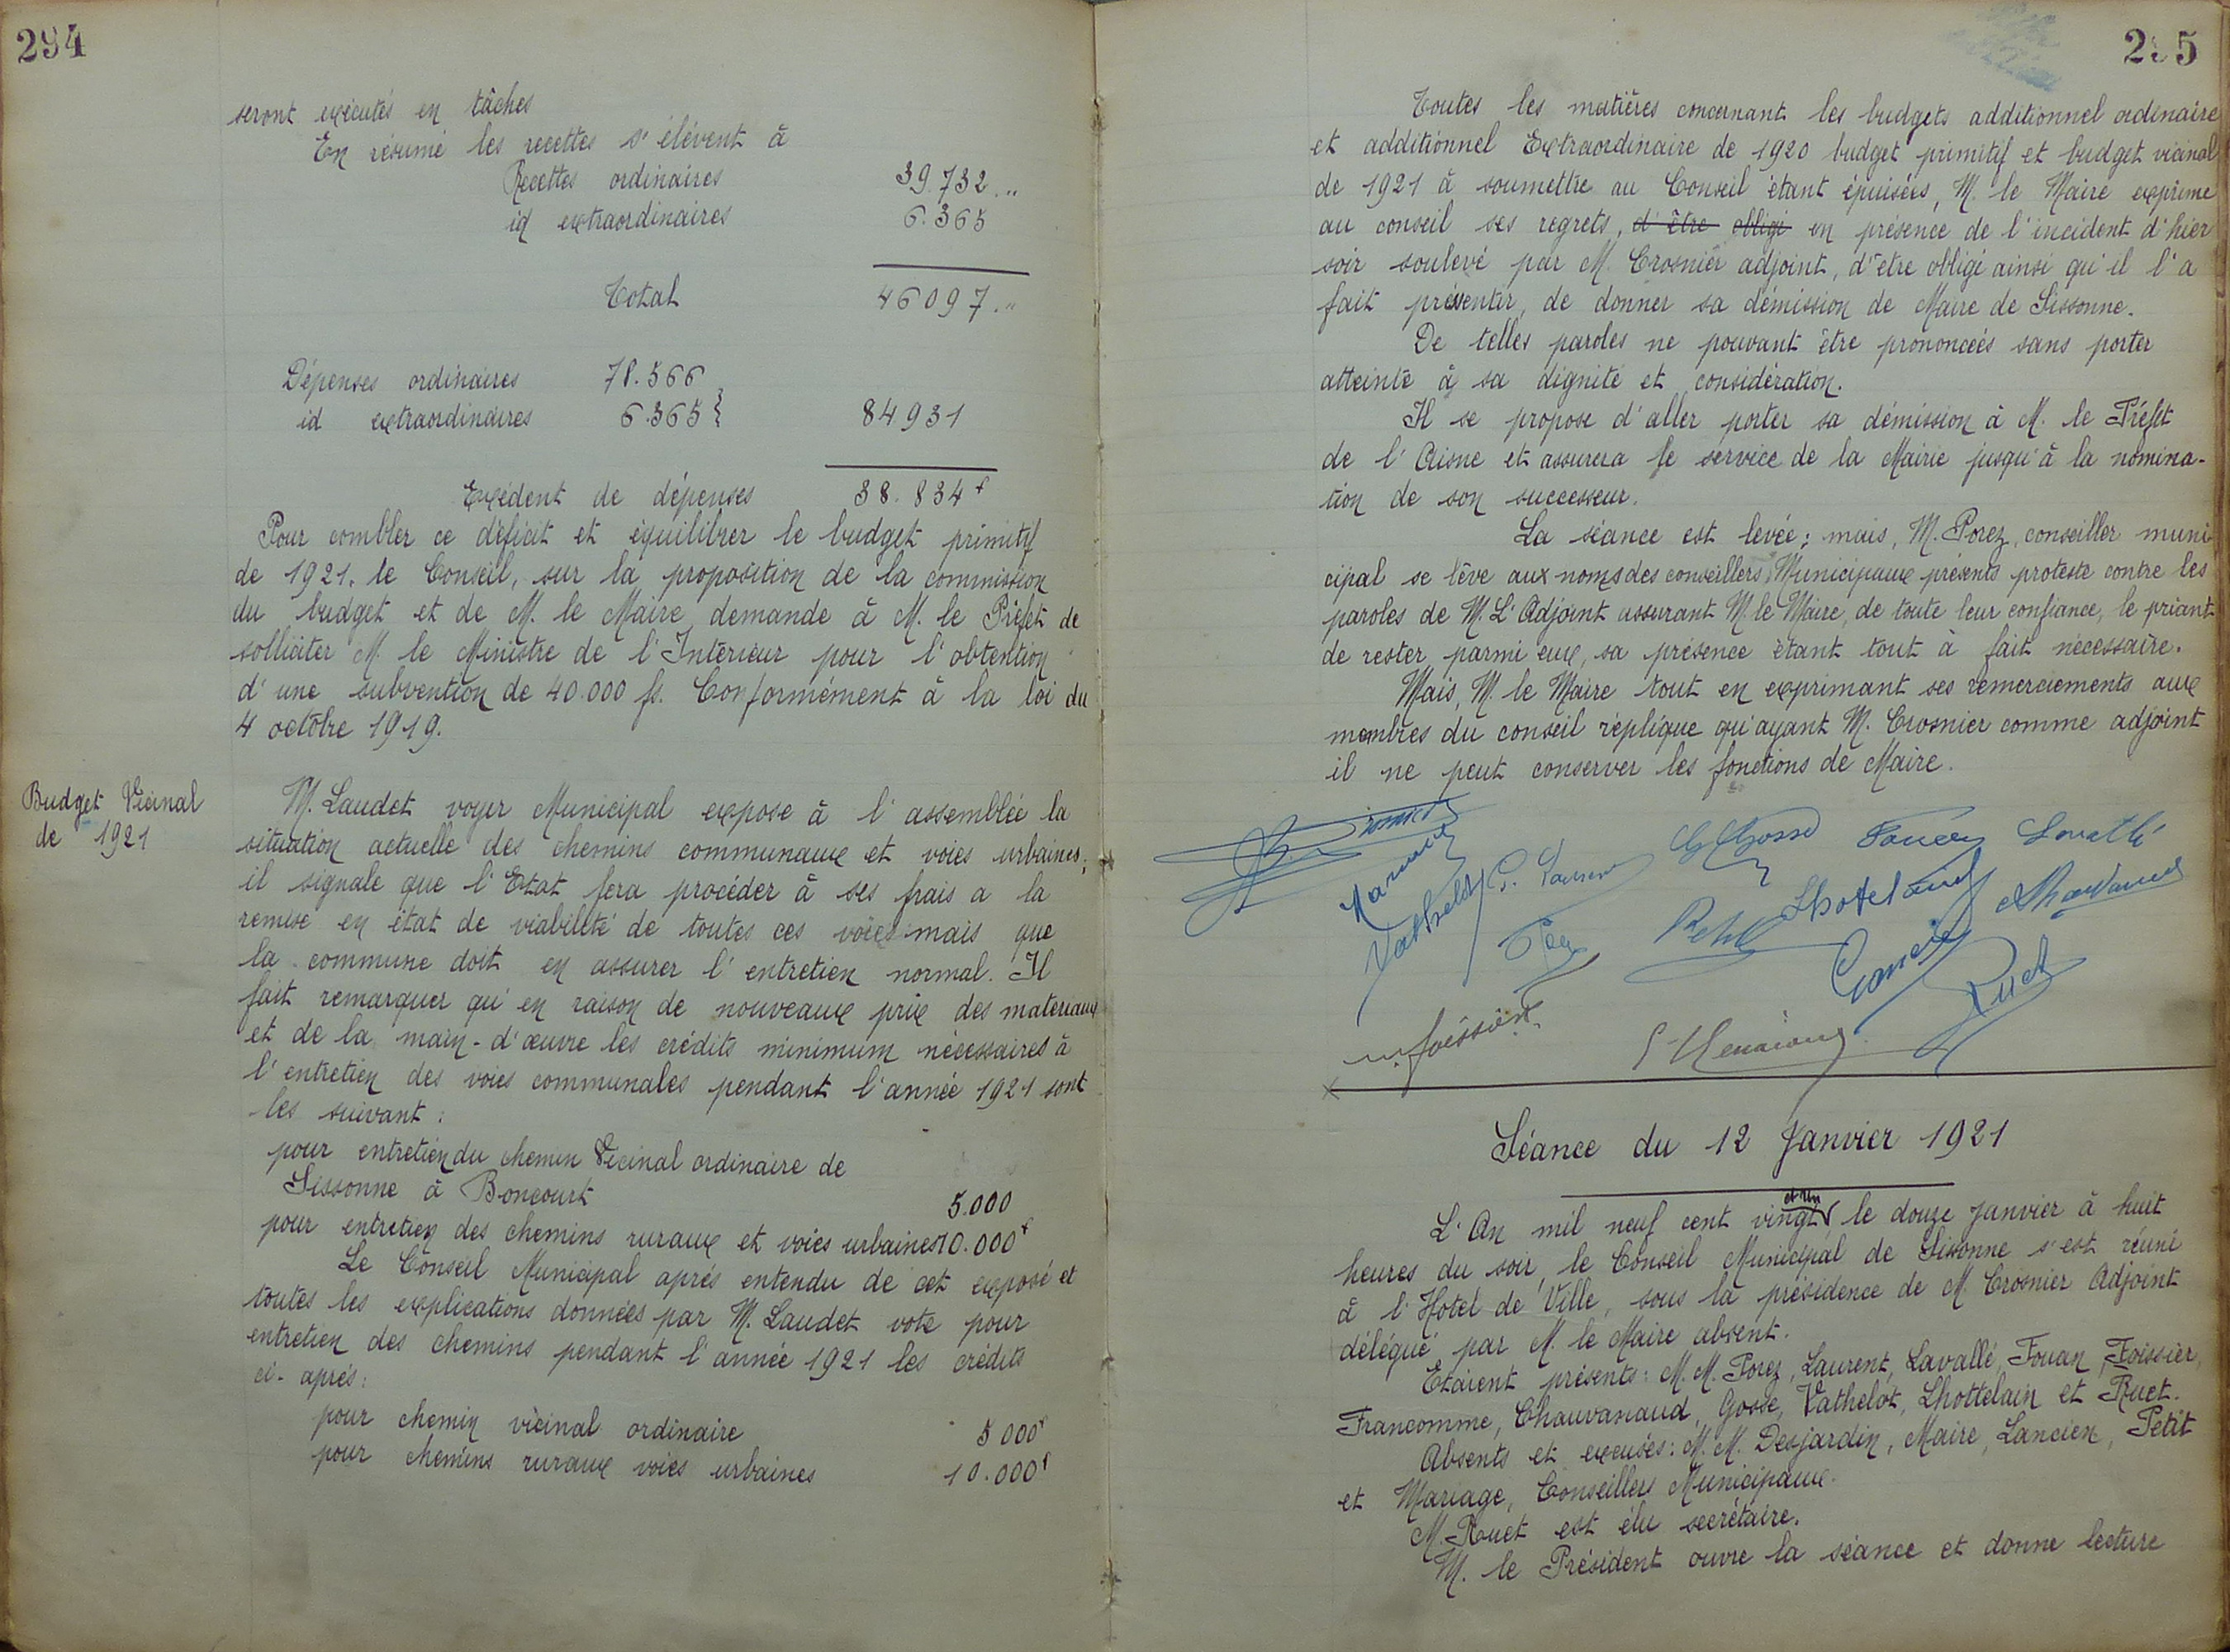 294
seront exécutés en tâches
En résumé les recettes s'élèvent à
Recettes ordinaires 39.732 ..
id extraordinaires 6.365
Total 46097. "
Dépenses ordinaires 78.566
id extraordinaires 6.365 } 84931
Excédent de dépenses 38.834 f
Pour combler ce déficit et équilibrer le budget primitif
de 1921. le Conseil, sur la proposition de la commission
du budget et de M. le Maire demande à M. le Préfet de
solliciter M. le Ministre de l'Intérieur pour l'obtention
d'une subvention de 40.000 fs. Conformément à la loi du
4 octobre 1919.
Budget Vicinal
de 1921
M. Laudet voyer Municipal expose à l'assemblée la
situation actuelle des chemins communaux et voies urbaines;
il signale que l'Etat fera procéder à ses frais a la
remise en état de viabilité de toutes ces voies mais que
la commune doit en assurer l'entretien normal. Il
fait remarquer qu'en raison de nouveaux prix des matériaux
et de la main-d'œuvre les crédits minimum nécessaires à
l'entretien des voies communales pendant l'année 1921 sont
les suivant :
pour entretien du chemin Vicinal ordinaire de
Sissonne à Boncourt 5.000
pour entretien des chemins ruraux et voies urbaines 10.000 f
Le Conseil Municipal aprés entendu de cet exposé et
toutes les explications données par M. Laudet vote pour
entretien des chemins pendant l'année 1921 les crédits
ci-aprés :
pour chemin vicinal ordinaire 5 000 f
pour chemins ruraux voies urbaines 10.000 f
295
Toutes les matières concernant les budgets additionnel ordinaire
et additionnel Extraordinaire de 1920 budget primitif et budget vicinal
de 1921 à soumettre au Conseil étant épuisées, M. le Maire exprime
au conseil ses regrets, d'être obligé en présence de l'incident d'hier
soir soulevé par M. Crosnier adjoint, d'être obligé ainsi qu'il l'a
fait préssentir, de donner sa démission de Maire de Sissonne.
De telles paroles ne pouvant être prononcées sans porter
atteinte à sa dignité et considération.
Il se propose d'aller porter sa démission à M. le Préfet
de l'Aisne et assurera le service de la Mairie jusqu'à la nomina-
tion de son successeur.
La séance est levée ; mais, M. Porez, conseiller muni
cipal se lève aux noms des conseillers Municipaux présents proteste contre les
paroles de M. L'Adjoint assurant M. le Maire, de toute leur confiance, le priant
de rester parmi eux, sa présence étant tout à fait nécessaire.
Mais, M. le Maire tout en exprimant ses remerciements aux
membres du conseil réplique qu'ayant M. Crosnier comme adjoint
il ne peut conserver les fonctions de Maire.
G Gosse Lavallé
Vathelot
Petit Lhotelain
Ruet
Foissier
Séance du 12 Janvier 1921
et un
L'An mil neuf cent vingt le douze janvier à huit
heures du soir, le Conseil Municipal de Sissonne s'est réuni
à l'Hotel de Ville, sous la présidence de M. Crosnier Adjoint
délégué par M. le Maire absent.
Etaient présents : M. M. Porez, Laurent, Lavallé, Fouan, Foissier,
Francomme, Chauvanaud, Gosse, Vathelot, Lhottelain et Ruet.
Absents et excusés : M. M. Desjardin, Maire, Lancien, Petit
et Mariage, Conseillers Municipaux.
M. Ruet est élu secrétaire.
M. le Président ouvre la séance et donne lecture